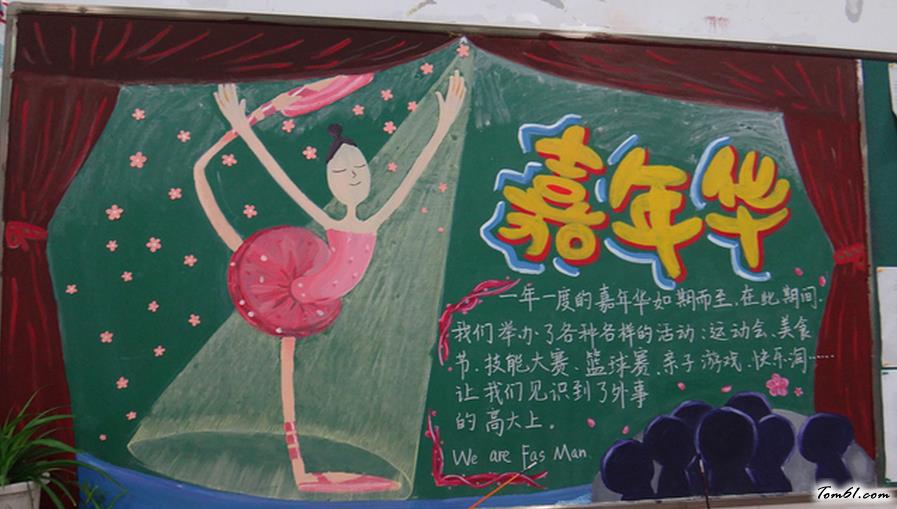 嘉年华
一年一度的嘉年华如期而至,在此期间.
我们举办了各种各样的活动、运动会、美食
节、技能大赛、篮球赛、亲子游戏、快乐淘……
让我们见识到了外事
的高大上。
We are Fas Man
Tom61.com